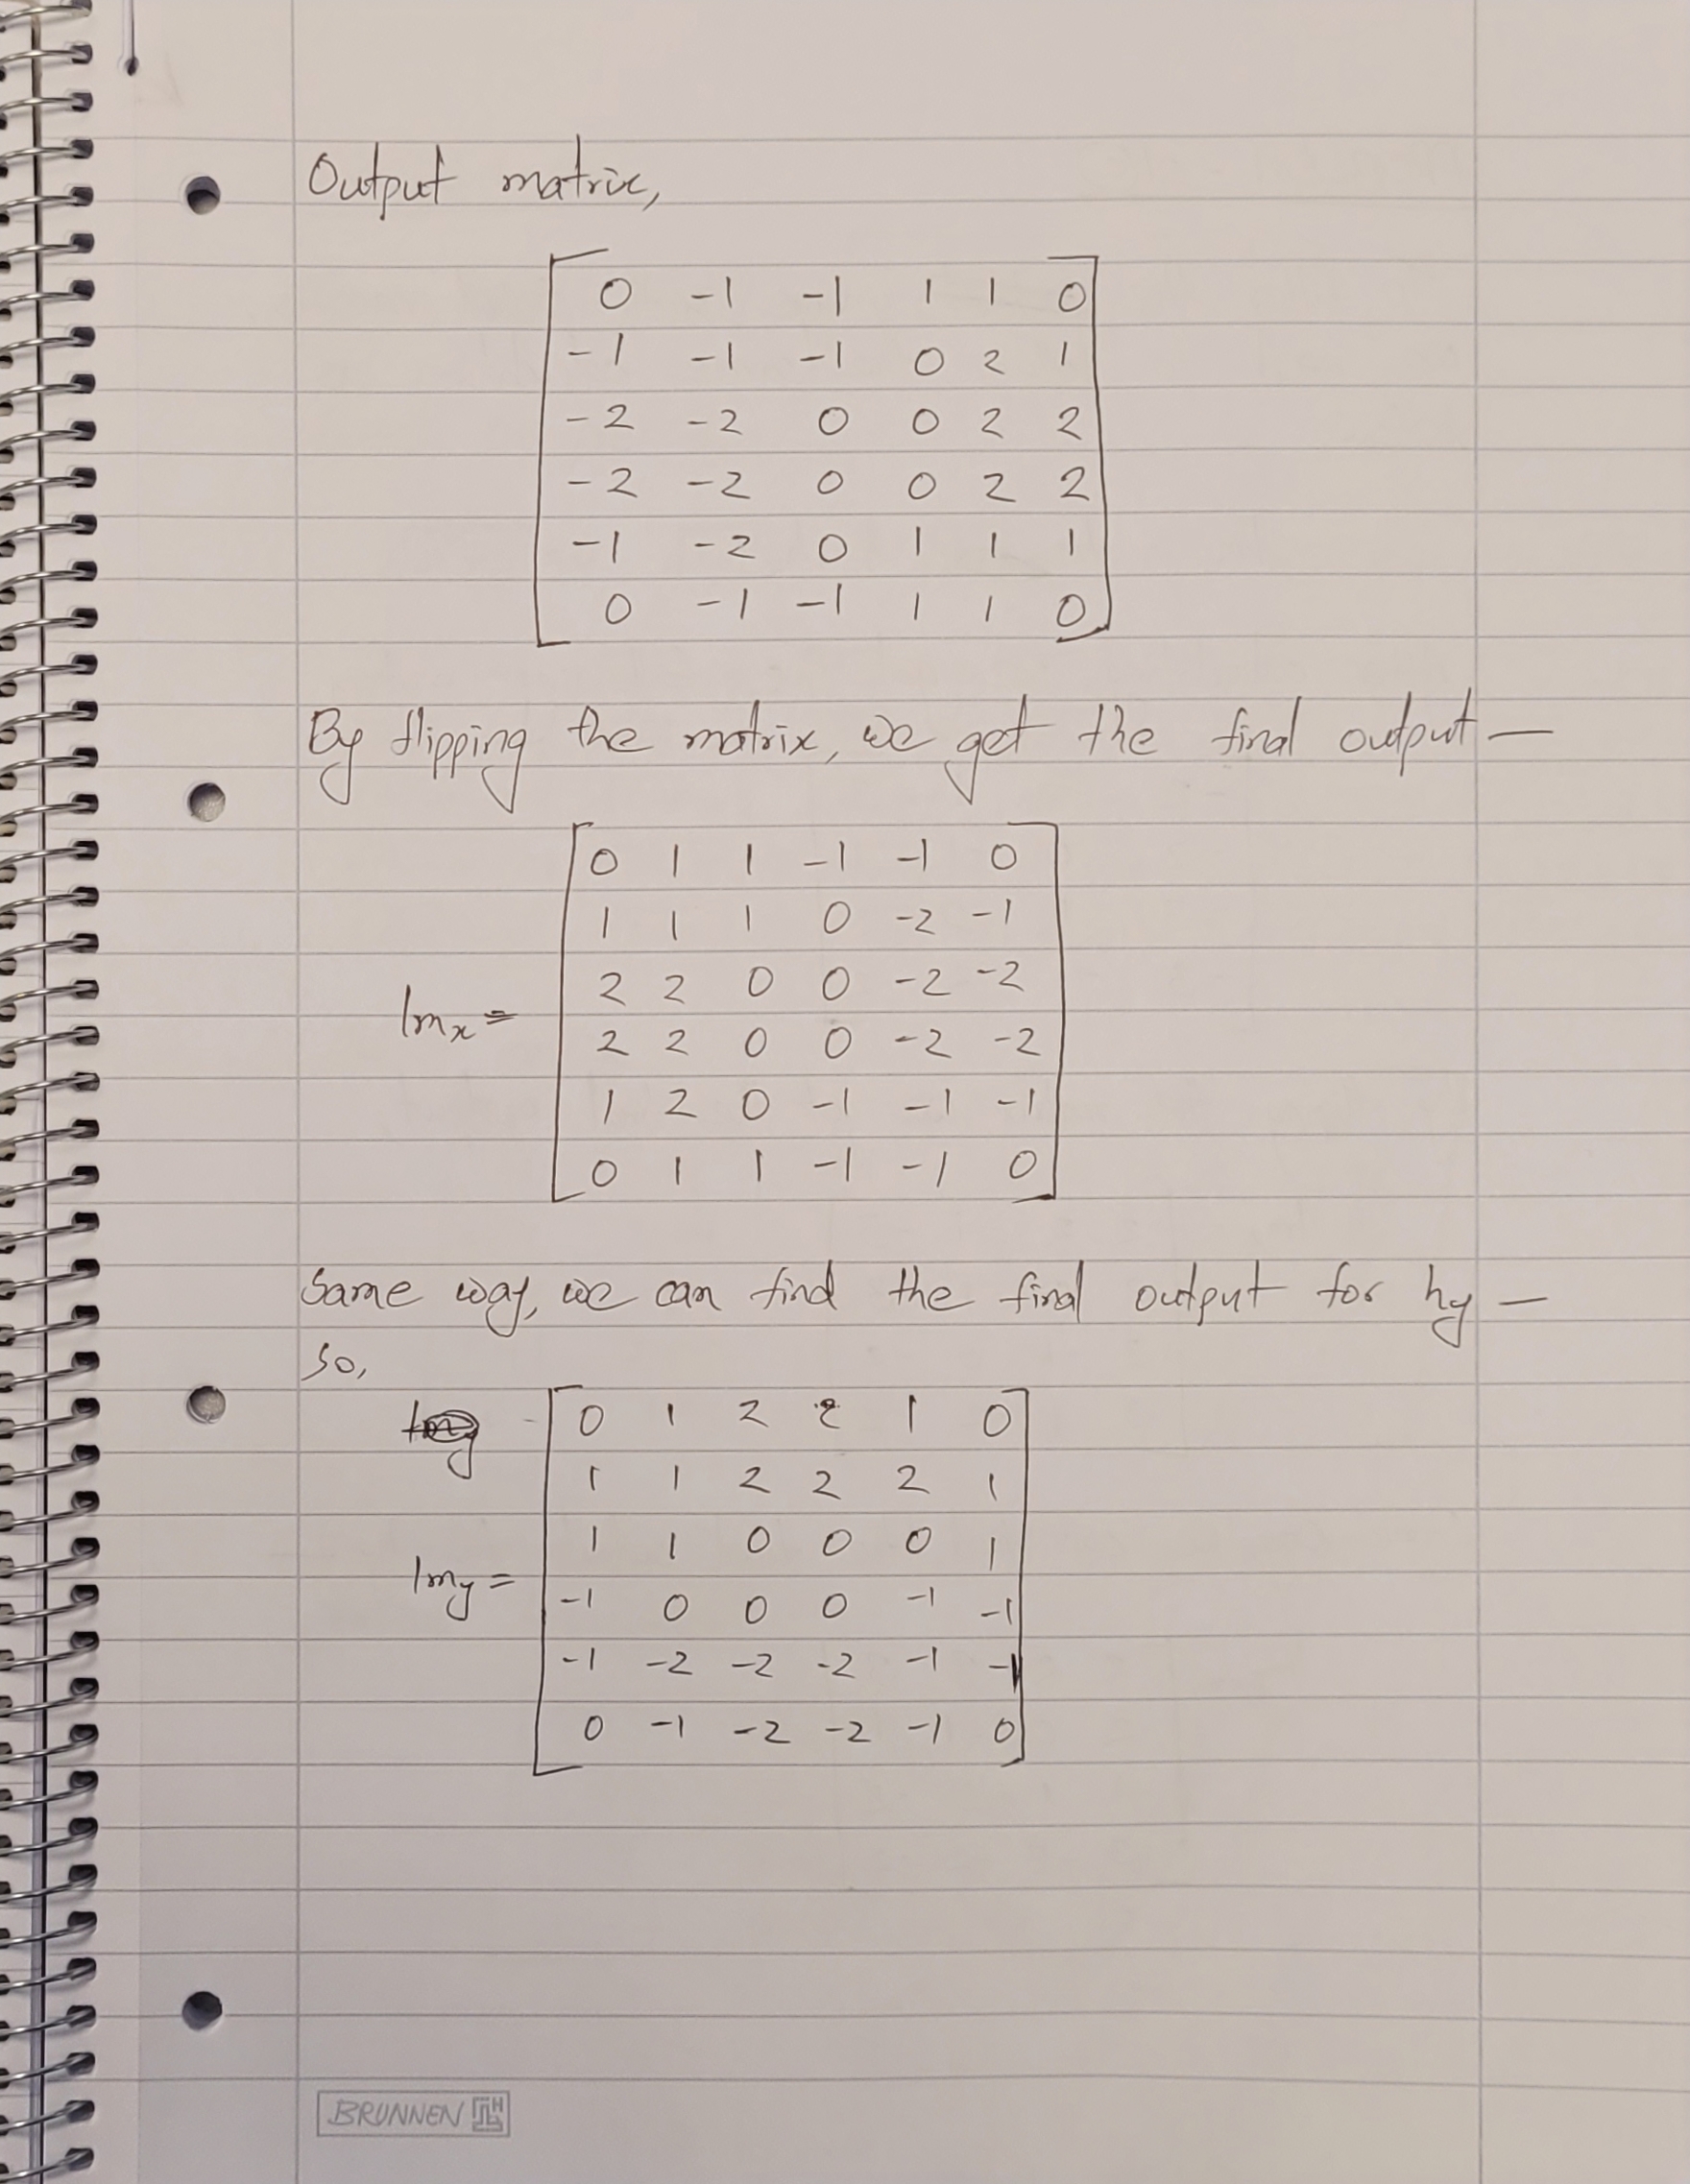 Output matrix,
0 -1 -1 1 1 0
-1 -1 -1 0 2 1
-2 -2 0 0 2 2
-2 -2 0 0 2 2
-1 -2 0 1 1 1
0 -1 -1 1 1 0
By flipping the matrix, we get the final output —
0 1 1 -1 -1 0
1 1 1 0 -2 -1
2 2 0 0 -2 -2
Imx =
2 2 0 0 -2 -2
1 2 0 -1 -1 -1
0 1 1 -1 -1 0
Same way, we can find the final output for hy —
So,
0 1 2 2 1 0
1 1 2 2 2 1
1 1 0 0 0 1
Imy =
-1 0 0 0 -1 -1
-1 -2 -2 -2 -1 -1
0 -1 -2 -2 -1 0
BRUNNEN